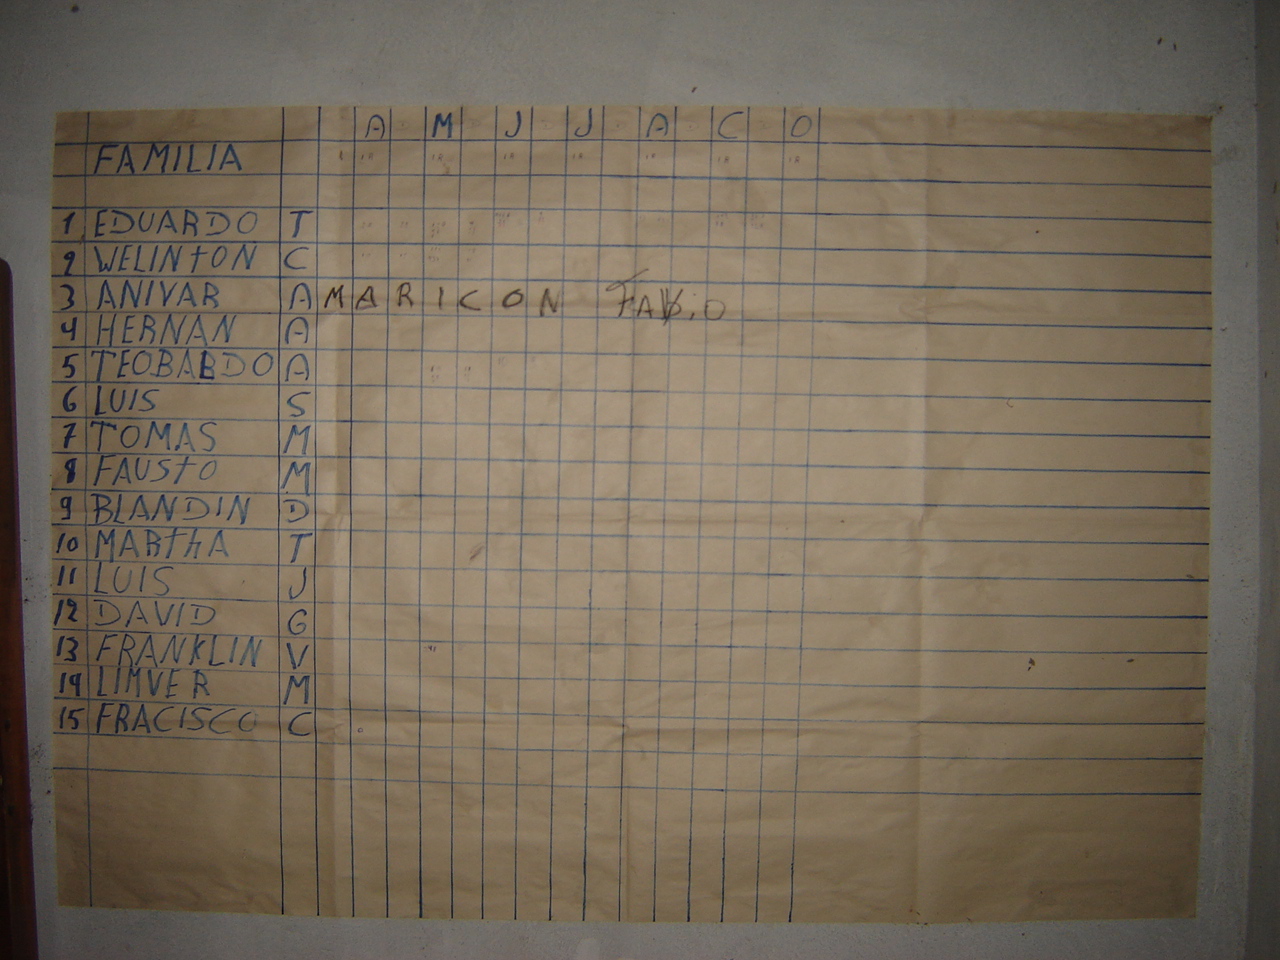 A M J J A C O
FAMILIA
1 EDUARDO T
2 WELINTON C
3 ANIVAR A MARICON
4 HERNAN A
5 TEOBALDO A
6 LUIS S
7 TOMAS M
8 FAUSTO M
9 BLANDIN D
10 MARTHA T
11 LUIS J
12 DAVID G
13 FRANKLIN V
14 LIMVER M
15 FRACISCO C